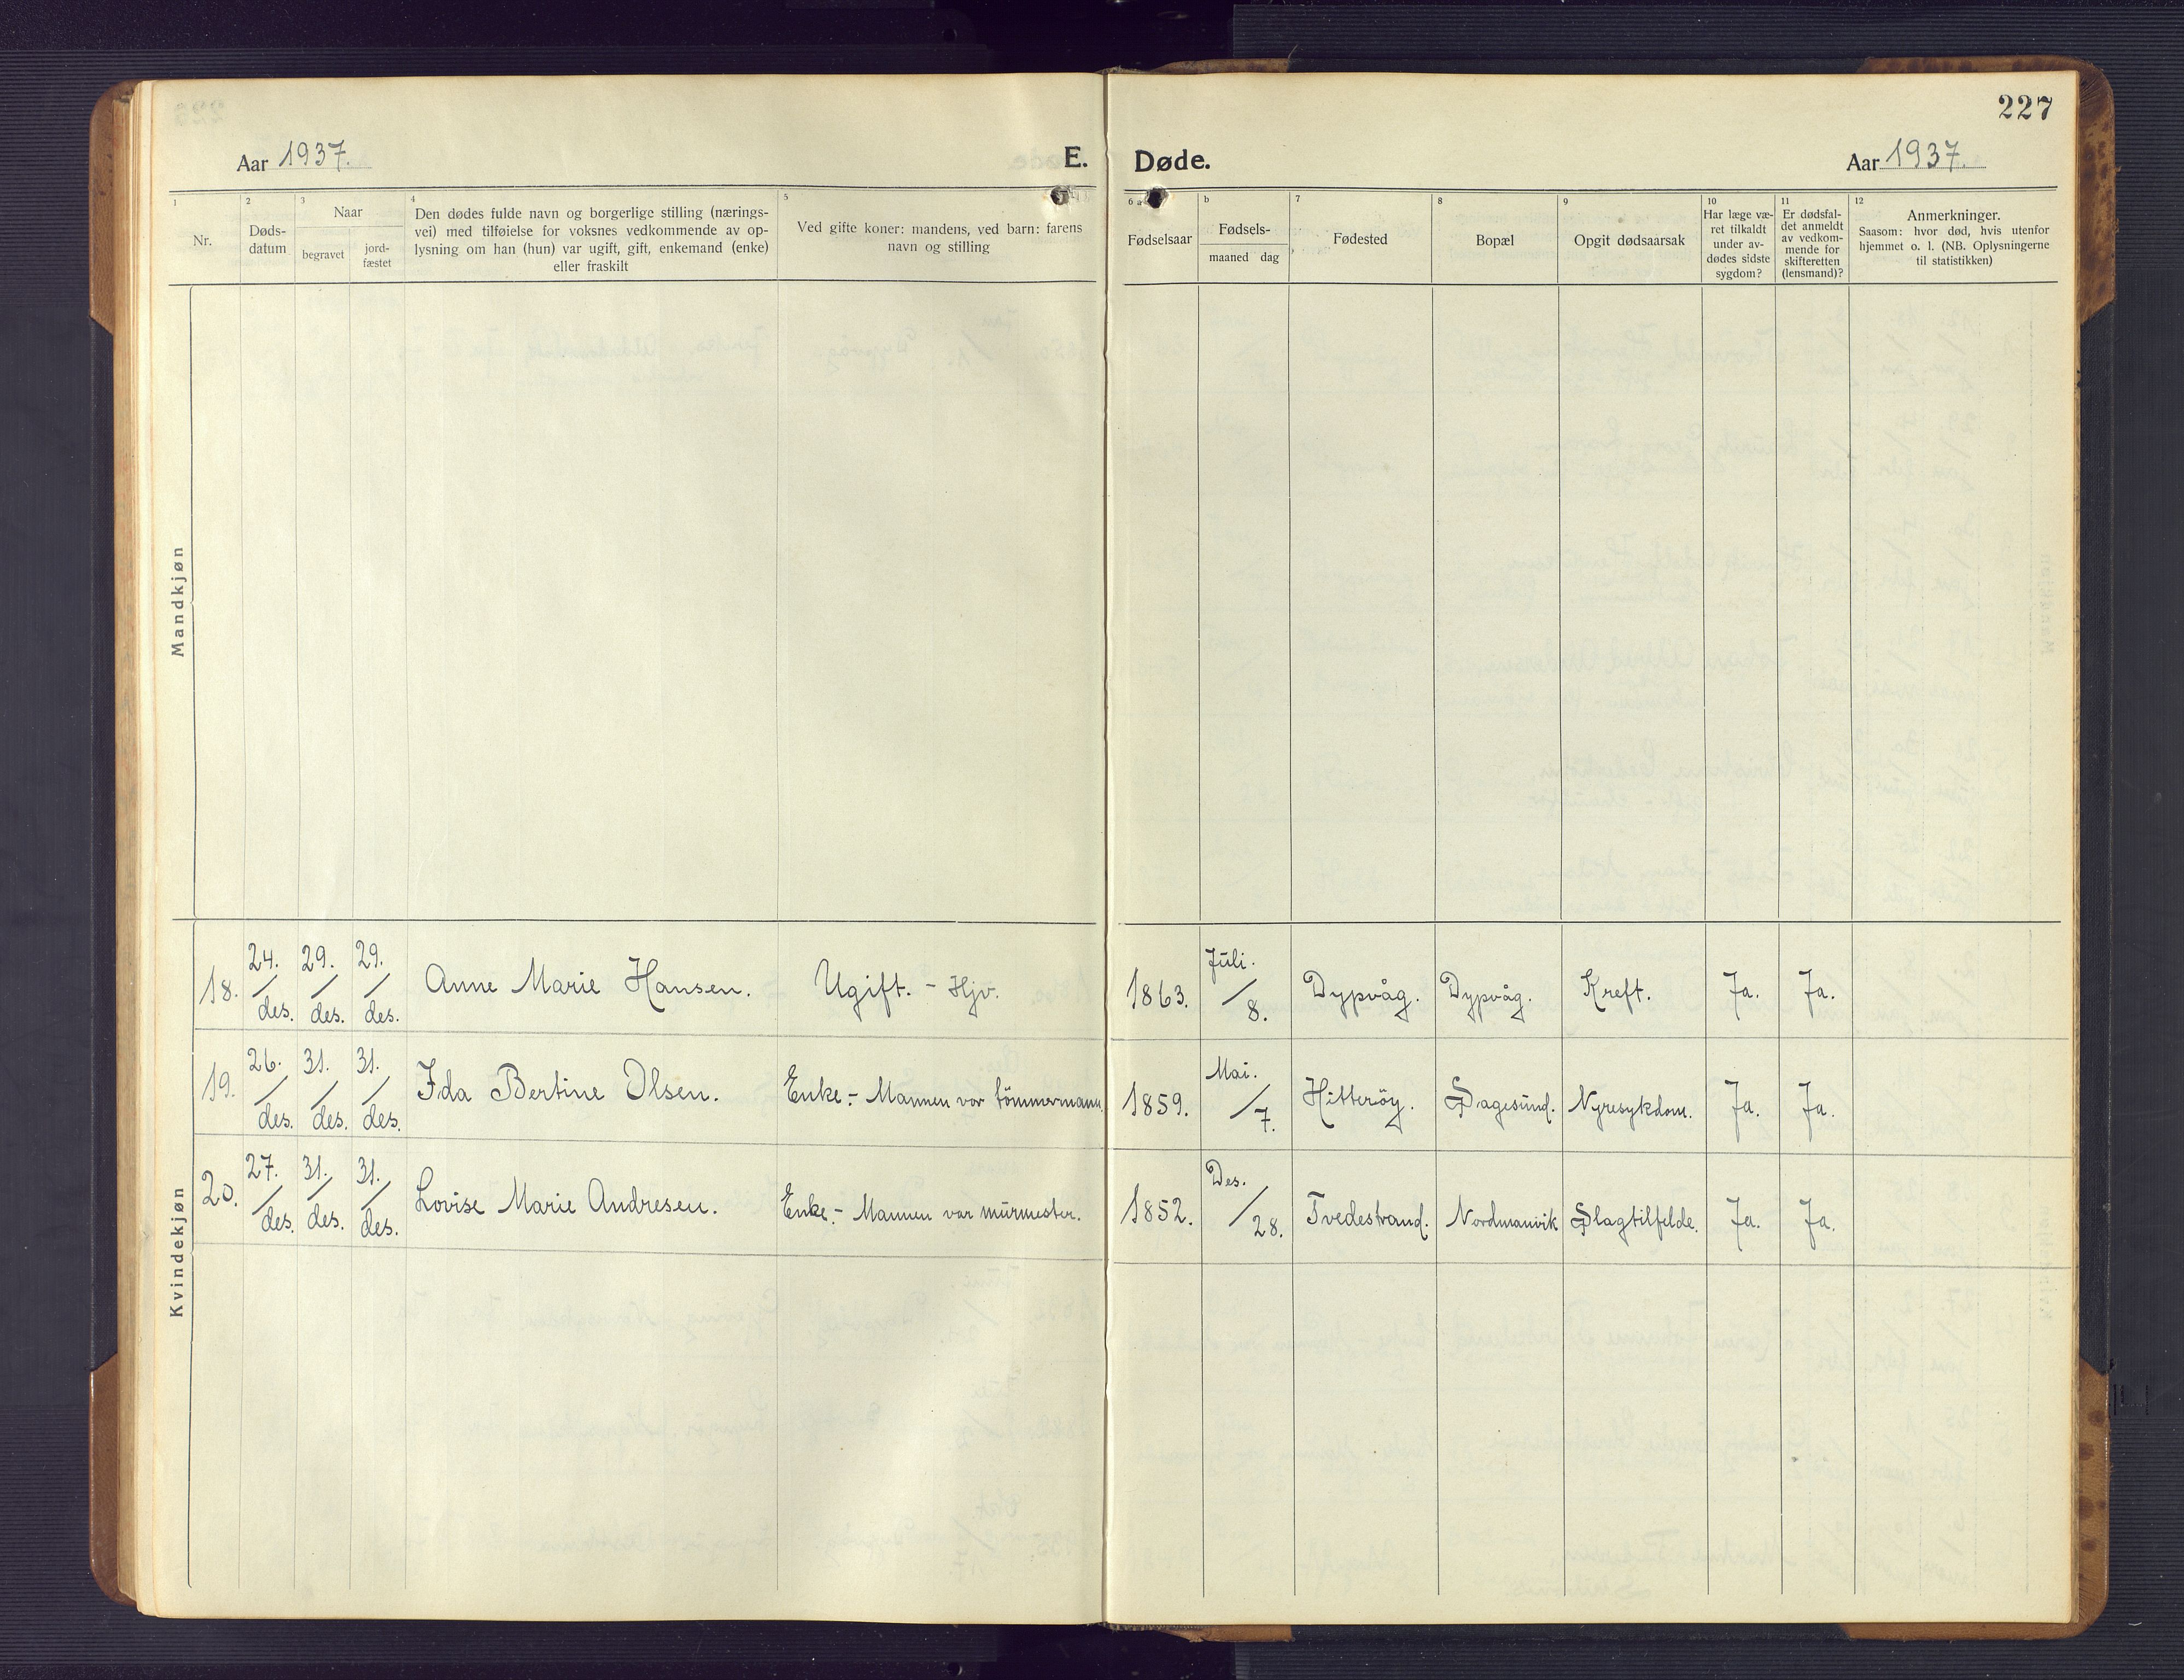 227
Aar 1937.
E. Døde.
Aar 1937.
1
Nr.
2
Døds-
datum
3
Naar
begravet
jord-
fæstet
4
Den dødes fulde navn og borgerlige stilling (nærings-
vei) med tilføielse for voksnes vedkommende av op-
lysning om han (hun) var ugift, gift, enkemand (enke)
eller fraskilt
5
Ved gifte koner: mandens, ved barn: farens
navn og stilling
6 a
Fødselsaar
b
Fødsels-
maaned dag
7
Fødested
8
Bopæl
9
Opgit dødsaarsak
10
Har læge væ-
ret tilkaldt
under av-
dødes sidste
sygdom?
11
Er dødsfal-
det anmeldt
av vedkom-
mende for
skifteretten
(lensmand)?
12
Anmerkninger.
Saasom: hvor død, hvis utenfor
hjemmet o. l. (NB. Oplysningerne
til statistikken)
Mandkjøn
Kvindekjøn
18. 24./des. 29./des. 29./des. Anne Marie Hansen. Ugift. - Hjv. 1863. Juli./8. Dypvåg. Dypvåg. Kreft. Ja. Ja.
19. 26./des. 31./des. 31./des. Ida Bertine Olsen. Enke.- Mannen var tömmermann. 1859. Mai./7. Hitteröy. Sagesund. Nyresykdom. Ja. Ja.
20. 27./des. 31./des. 31./des. Lovise Marie Andresen. Enke.- Mannen var murmester. 1852. Des./28. Tvedestrand. Nordmanvik Slagtilfelde. Ja. Ja.